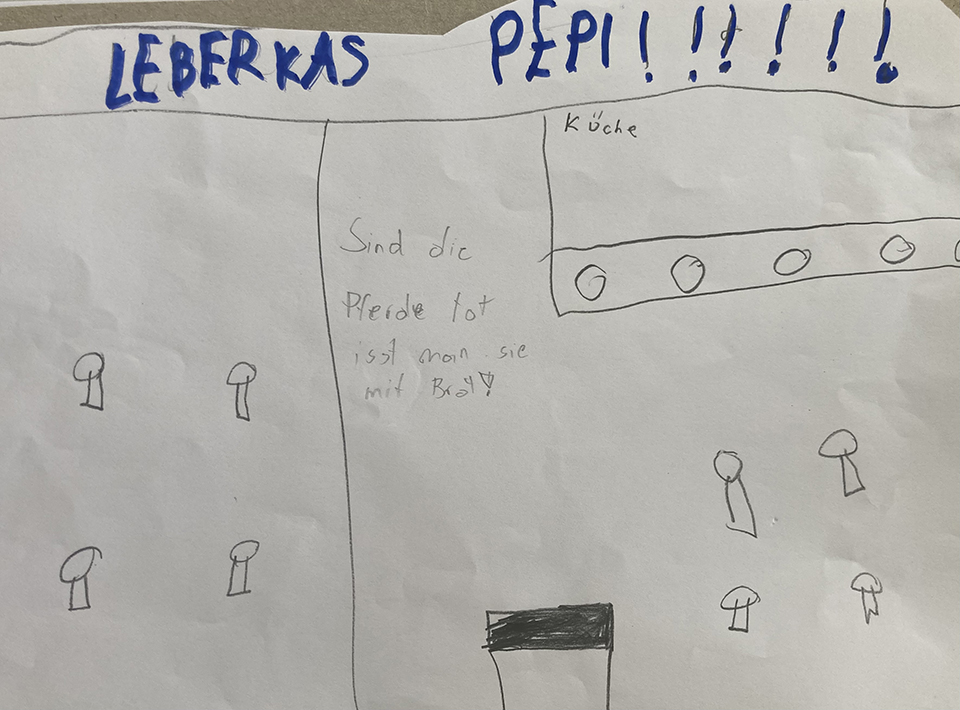 LEBERKAS PEPI!!!!!!
Küche
Sind die
Pferde tot
isst man sie
mit Brot!